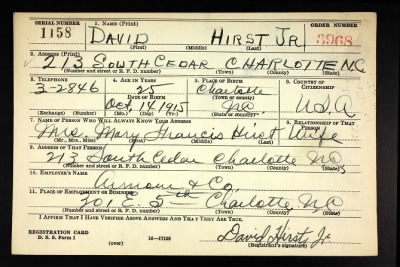 SERIAL NUMBER 1. NAME (Print) ORDER NUMBER
1158 DAVID HIRST JR 3968
(First) (Middle) (Last)
2. ADDRESS (Print)
213 SOUTH CEDAR CHARLOTTE NC
(Number and street or R. F. D. number) (Town) (County) (State)
3. TELEPHONE 4. AGE IN YEARS 5. PLACE OF BIRTH 6. COUNTRY OF CITIZENSHIP
3-2846 25 Charlotte
DATE OF BIRTH (Town or county)
Oct. 14 1915 USA
(Exchange) (Number) (Mo.) (Day) (Yr.) (State or country)
7. NAME OF PERSON WHO WILL ALWAYS KNOW YOUR ADDRESS 8. RELATIONSHIP OF THAT PERSON
Mrs. Mary Francis Hirst Wife
(Mr., Mrs., Miss) (First) (Middle) (Last)
9. ADDRESS OF THAT PERSON
213 South Cedar Charlotte NC
(Number and street or R. F. D. number) (Town) (County) (State)
10. EMPLOYER'S NAME
Armour & Co.
11. PLACE OF EMPLOYMENT OR BUSINESS
301 E. 5th Charlotte, NC
(Number and street or R. F. D. number) (Town) (County) (State)
I AFFIRM THAT I HAVE VERIFIED ABOVE ANSWERS AND THAT THEY ARE TRUE.
REGISTRATION CARD
D. S. S. Form 1 16-17105 David Hirst Jr.
(Registrant's signature)